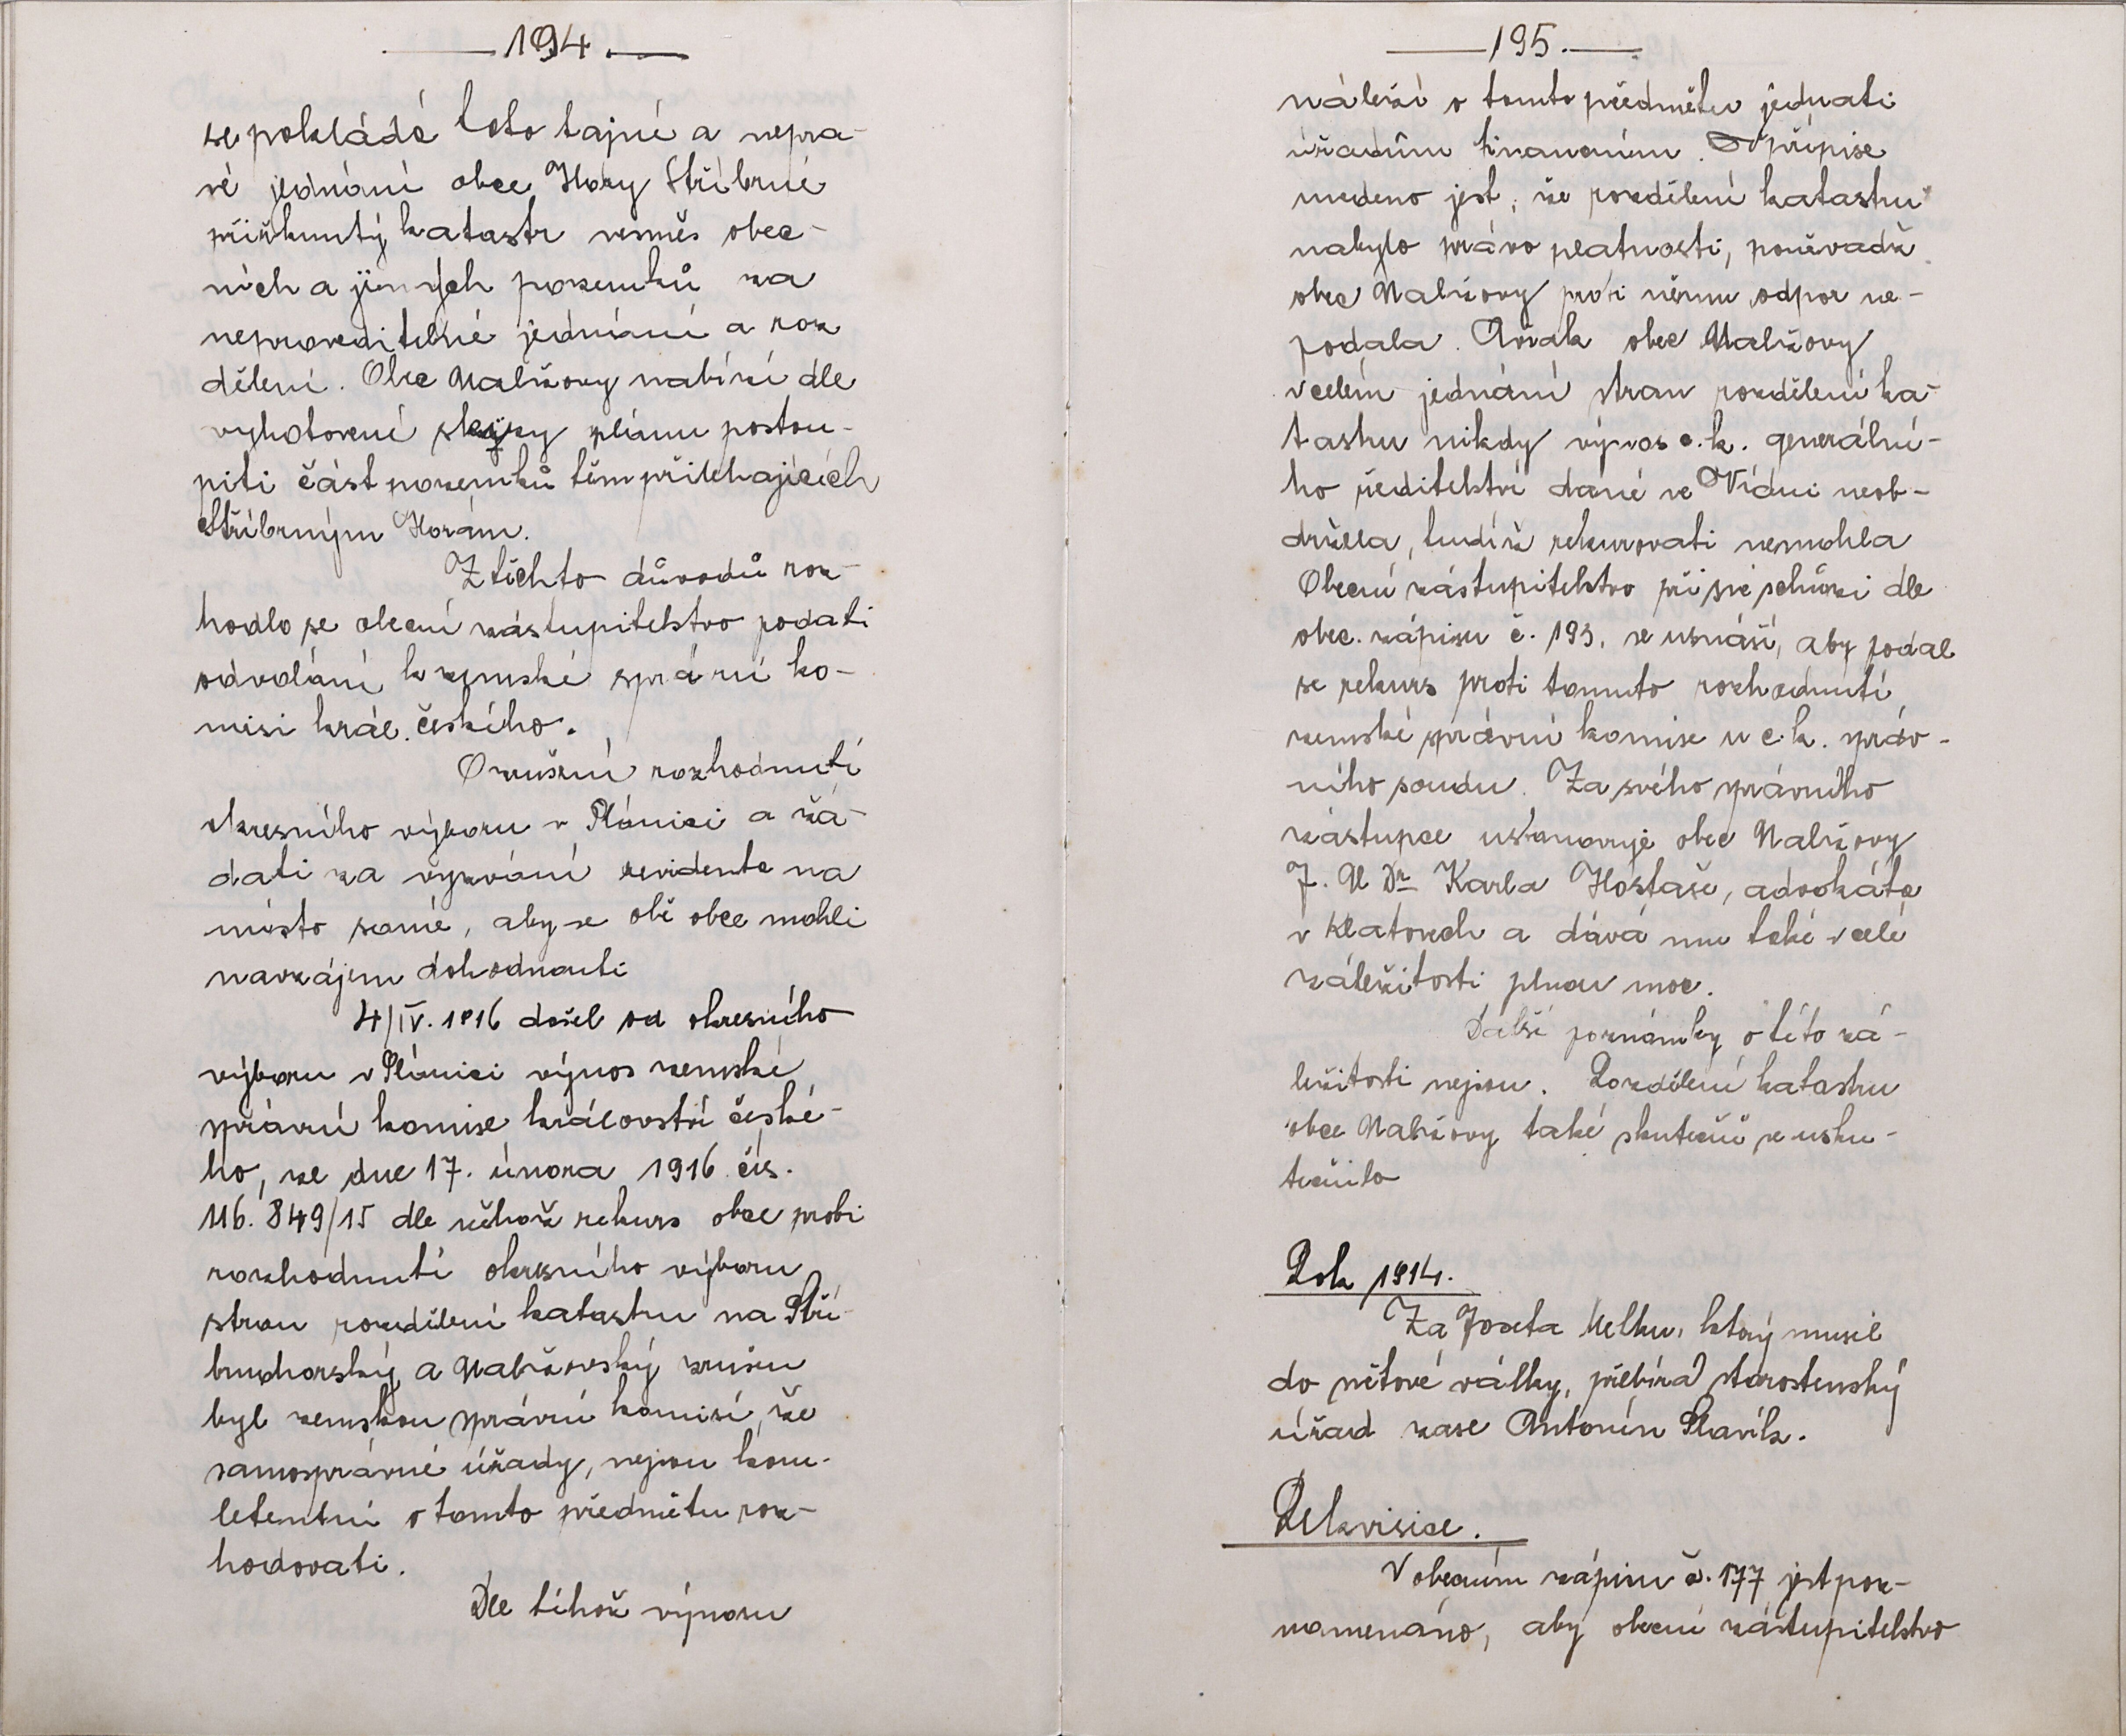 194.
se pokládá toto tajné a nepra-
vé jednání obce Hory Stříbrné
přiřknutý katastr vesměs obec-
ních a jiných pozemků za
neproveditelné jednání a roz
dělení. Obec Nalžovy nabízí dle
vyhotovené skizy plánu postou-
piti část pozemků těm přiléhajících
Stříbrným Horám.
Z těchto důvodů roz-
hodlo se obecní zástupitelstvo podati
odvolání k zemské správní ko-
misi král. českého.
O zrušení rozhodnutí
okresního výboru v Plánici a žá-
dati za vyzvání revidenta na
místo samé, aby se obě obce mohli
navzájem dohodnouti
4/IV. 1916 došel od okresního
výboru v Plánici výnos zemské
správní komise království české-
ho, ze dne 17. února 1916 čís.
116.849/15 dle něhož rekurs obce proti
rozhodnutí okresního výboru
stran rozdělení katastru na Stří-
brnohorský a Nalžovský zrušen
byl zemskou správní komisí, že
samosprávné úřady, nejsou kom-
letentní o tomto předmětu roz-
hodovati.
Dle téhož výnosu
195.
náleží o tomto předmětu jednati
úřadům finančním. V přípise
uvedeno jest, že rozdělení katastru
nabylo právo platnosti, poněvadž
obec Nalžovy proti němu odpor ne-
podala. Avšak obec Nalžovy
v celém jednání stran rozdělení ka-
tastru nikdy výnos c. k. generální-
ho ředitelství daně ve Vídni neob-
držela, tudíž rekurovati nemohla
Obecní zástupitelstvo při své schůzi dle
obec. zápisu č. 193. se usnáší, aby podal
se rekurs proti tomuto rozhodnutí
zemské správní komise u c. k. správ-
ního soudu. Za svého právního
zástupce ustanovuje obec Nalžovy
J. U Dr Karla Hostaše, advokáta
v Klatovech a dává mu také v celé
záležitosti plnou moc.
Další poznámky o této zá-
ležitosti nejsou. Rozdělení katastru
obce Nalžovy také skutečně se usku-
tečnilo
Rok 1914.
Za Josefa Melku, který musil
do světové války, přebírá starostenský
úřad zase Antonín Slavík.
Rekvisice.
V obecním zápisu č. 177 jest poz-
namenáno, aby obecní zástupitelstvo